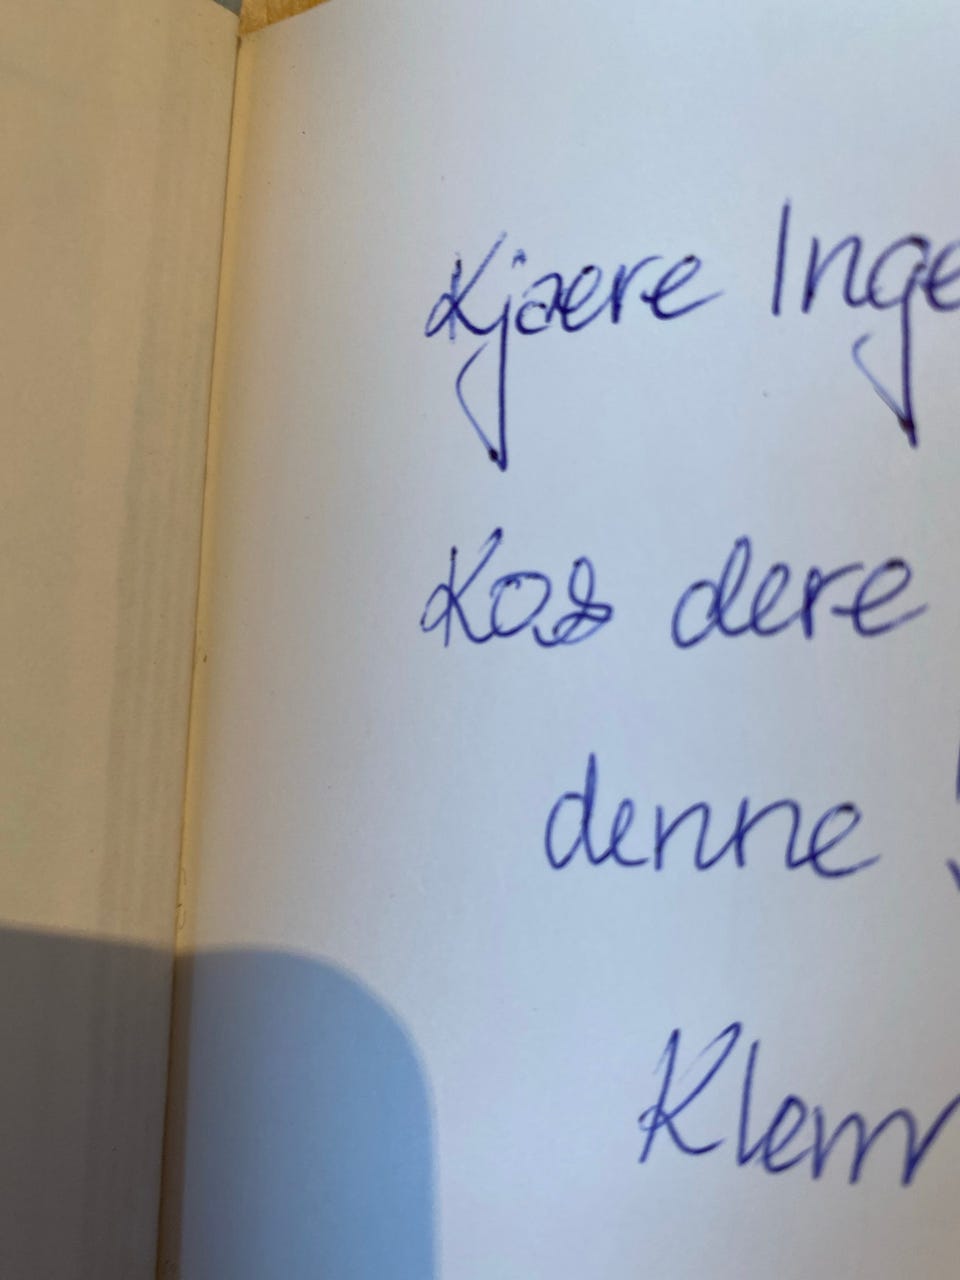 Kjære Inge
Kos dere
denne
Klem